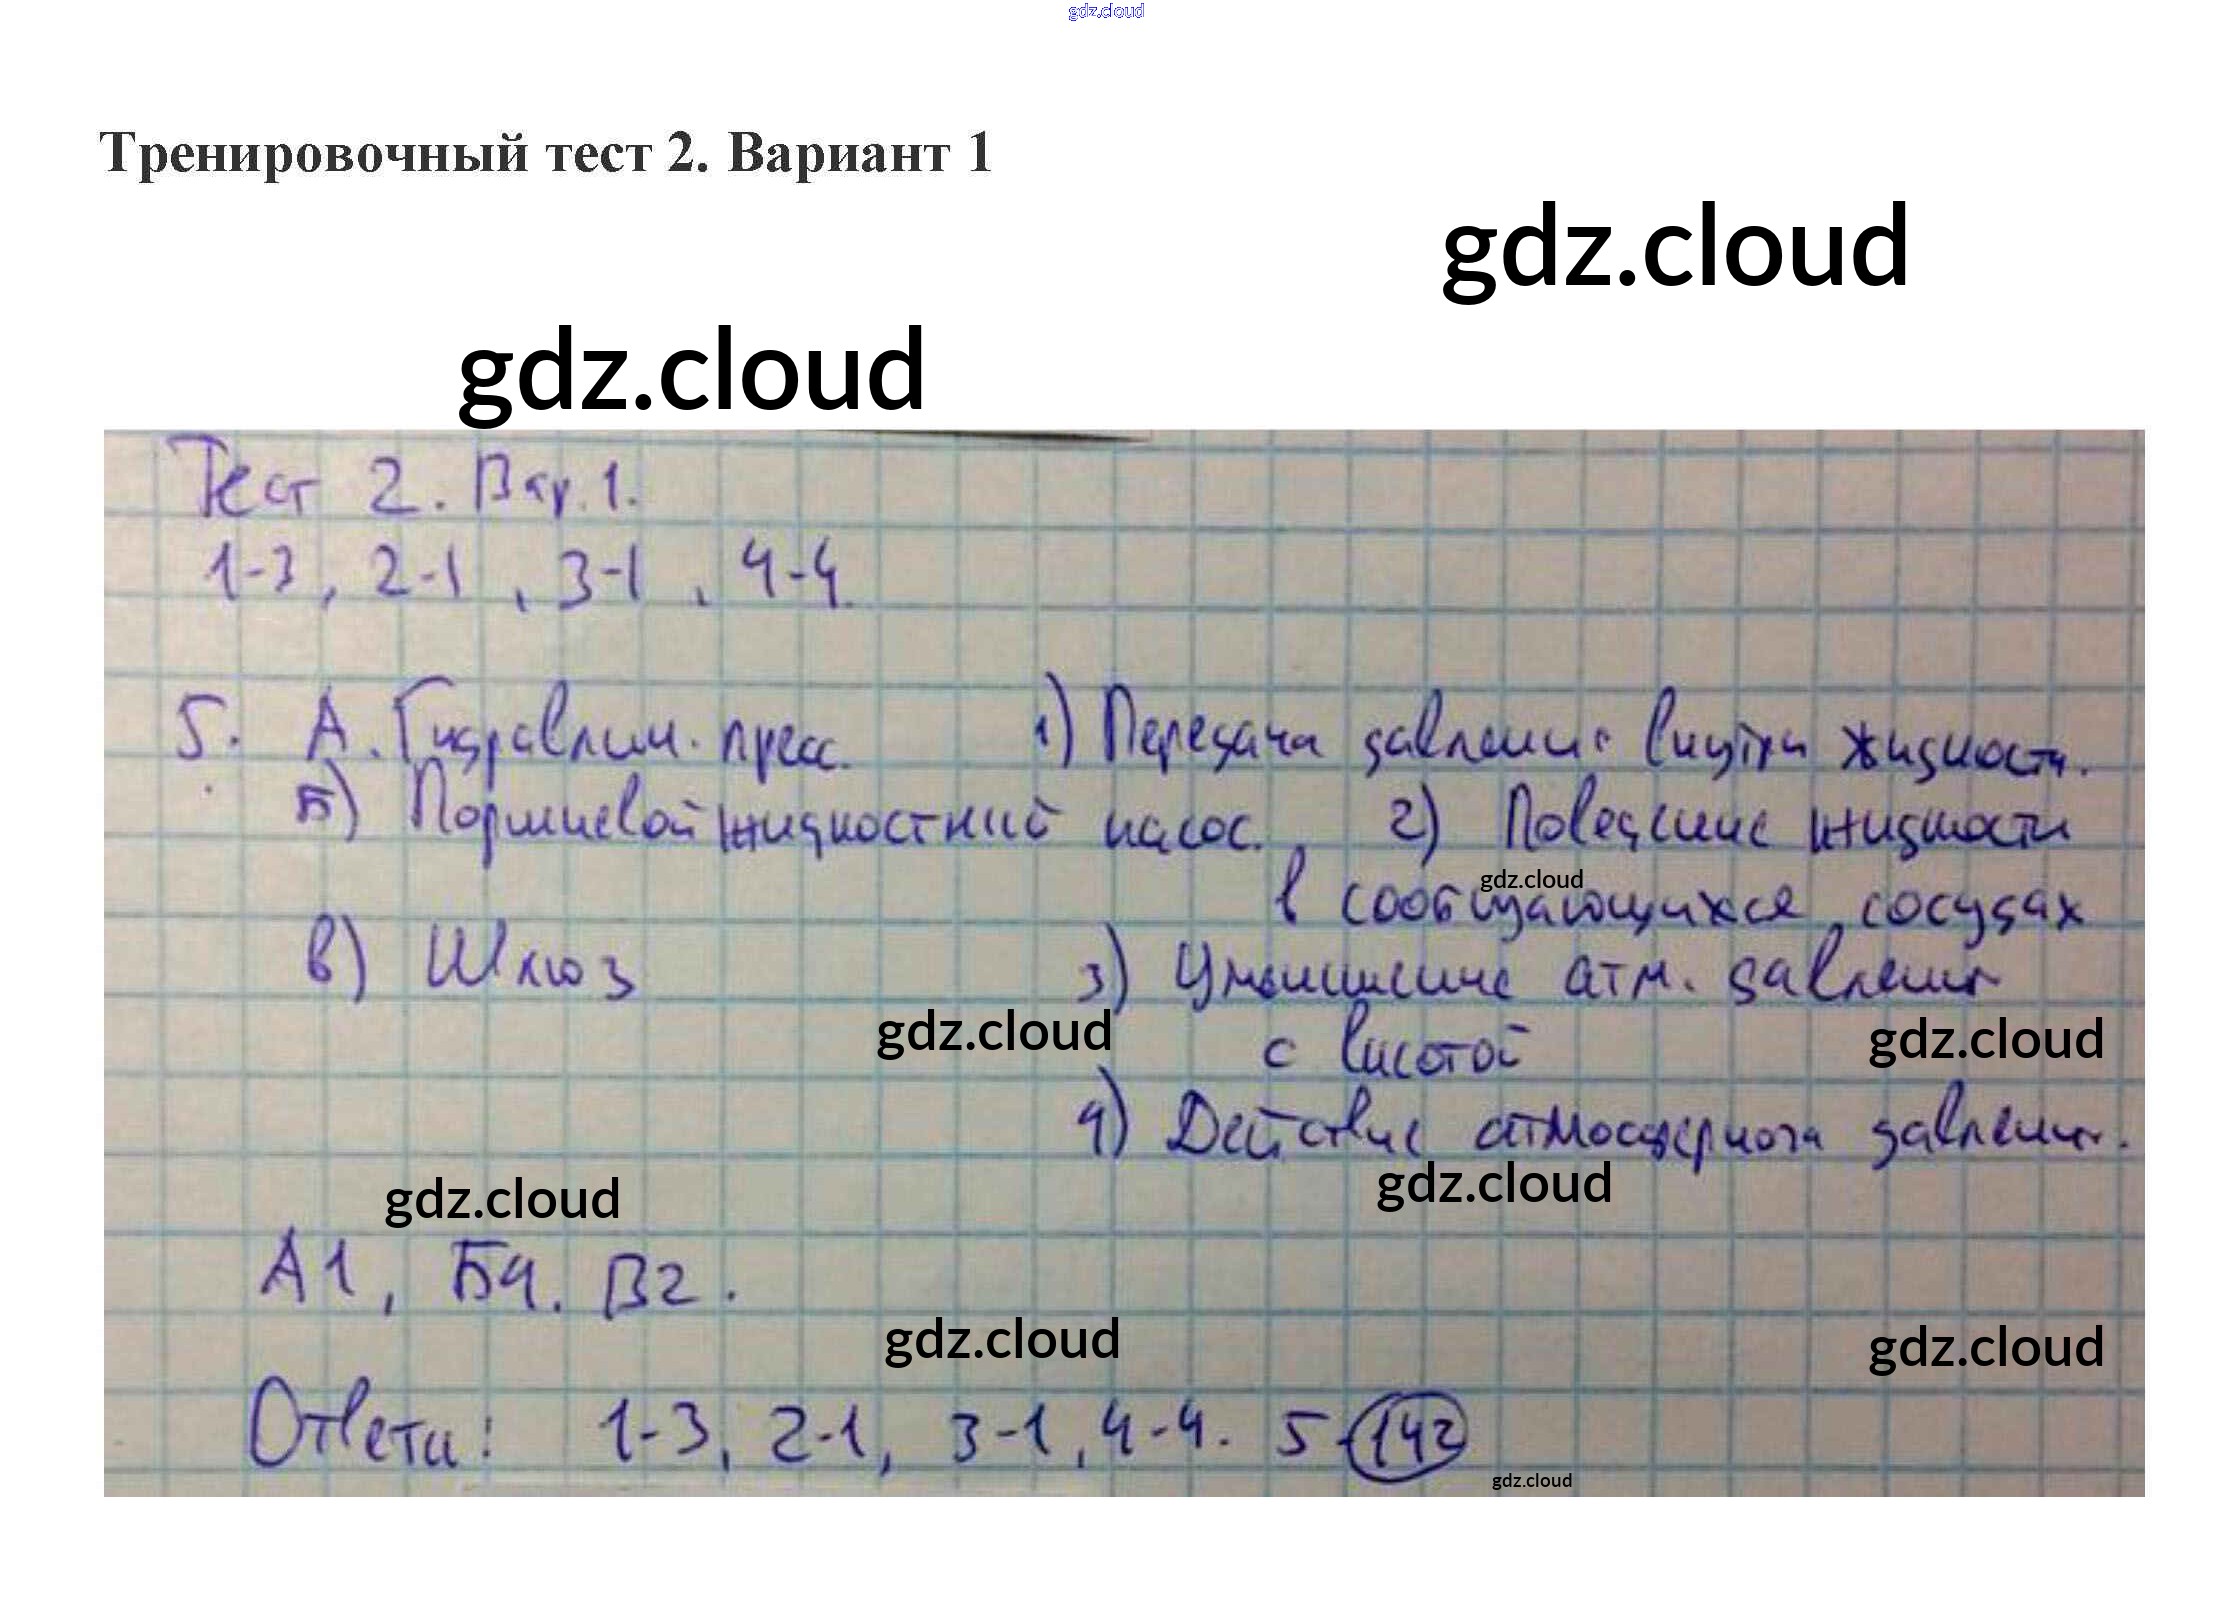 gdz.cloud
Тренировочный тест 2. Вариант 1
gdz.cloud
gdz.cloud
Тест 2. Вар. 1.
1-3, 2-1, 3-1, 4-4.
5. А. Гидравлич. пресс. 1) Передача давления внутри жидкости.
Б) Поршневой жидкостный насос. 2) Поведение жидкости
gdz.cloud
в сообщающихся сосудах
В) Шлюз 3) Уменьшение атм. давления
gdz.cloud gdz.cloud
с высотой
4) Действие атмосферного давления.
gdz.cloud gdz.cloud
А1, Б4. В2.
gdz.cloud gdz.cloud
Ответы: 1-3, 2-1, 3-1, 4-4. 5-142
gdz.cloud